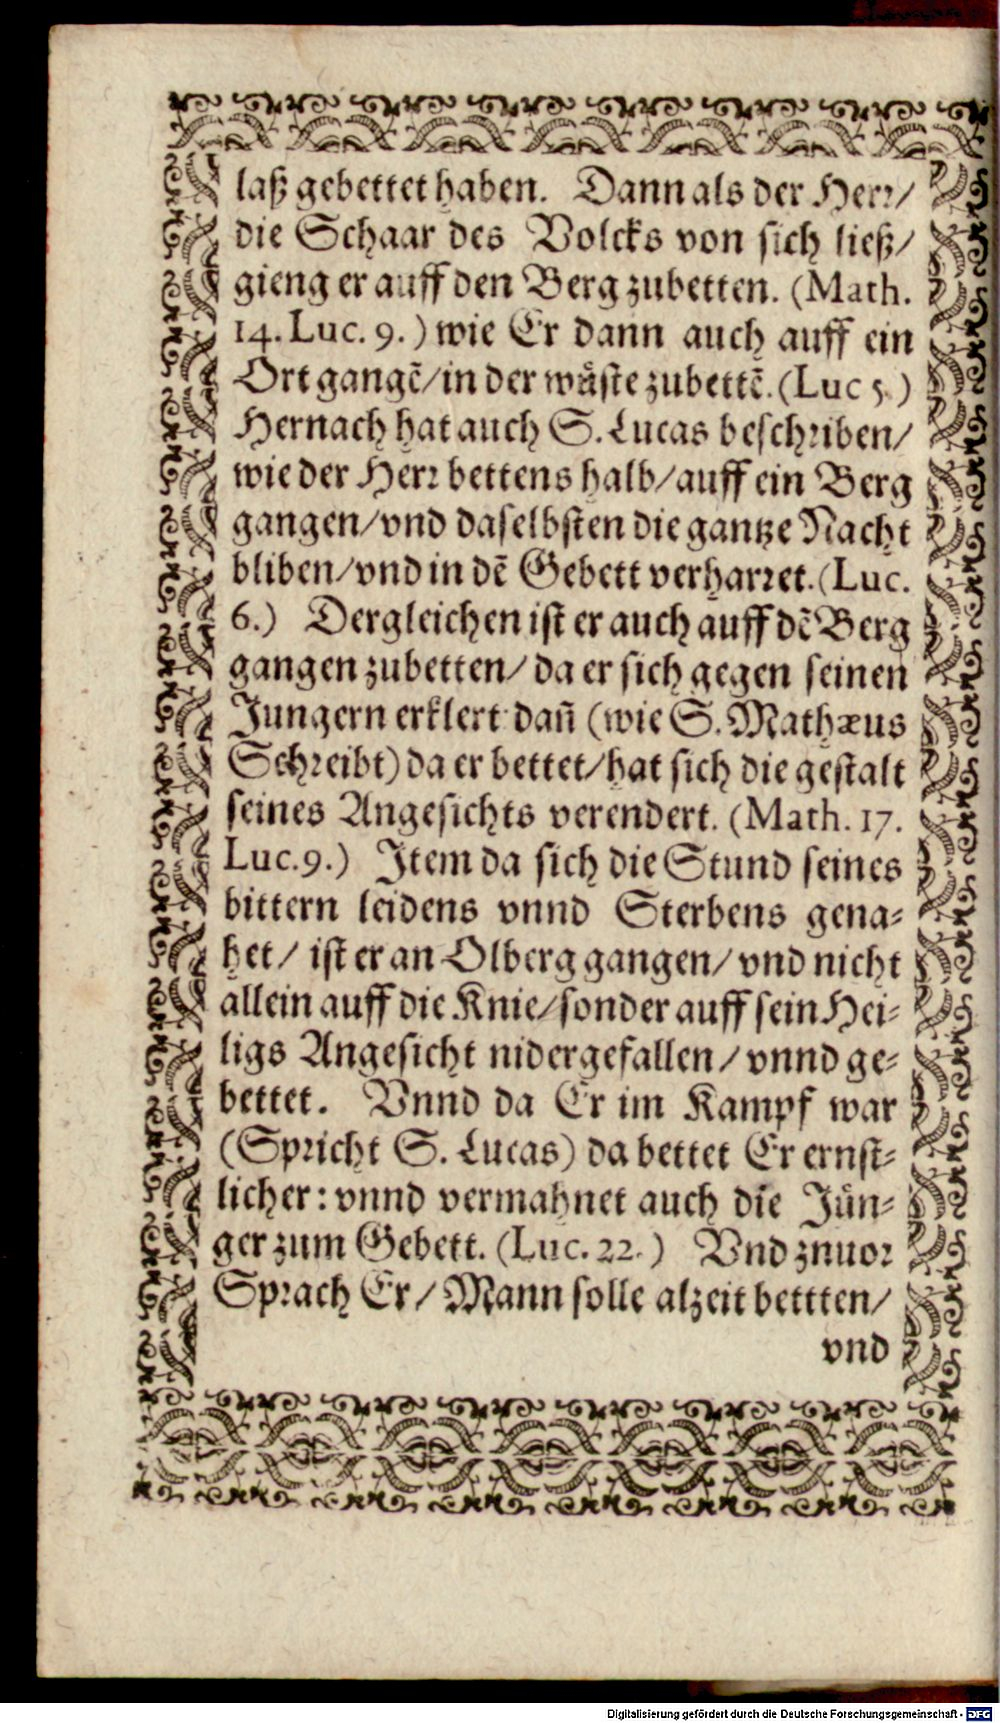 laß gebettet haben. Dann als der Herr/
die Schaar des Volcks von sich ließ/
gieng er auff den Berg zubetten. (Math.
14. Luc. 9.) wie Er dann auch auff ein
Ort gangẽ/in der wuͤste zubettẽ. (Luc 5.)
Hernach hat auch S. Lucas beschriben/
wie der Herr bettens halb/auff ein Berg
gangen/vnd daselbsten die gantze Nacht
bliben/vnd in dẽ Gebett verharret. (Luc.
6.) Dergleichen ist er auch auff dẽ Berg
gangen zubetten/ da er sich gegen seinen
Jungern erklert dañ (wie S. Mathæus
Schreibt) da er bettet/hat sich die gestalt
seines Angesichts verendert. (Math. 17.
Luc. 9.) Item da sich die Stund seines
bittern leidens vnnd Sterbens gena-
het/ ist er an Olberg gangen/ vnd nicht
allein auff die Knie/sonder auff sein Hei-
ligs Angesicht nidergefallen/ vnnd ge-
bettet. Vnnd da Er im Kampf war
(Spricht S. Lucas) da bettet Er ernst-
licher: vnnd vermahnet auch die Jün-
ger zum Gebett. (Luc. 22.) Vnd znuor
Sprach Er/ Mann solle alzeit bettten/
vnd
Digitalisierung gefördert durch die Deutsche Forschungsgemeinschaft - DFG